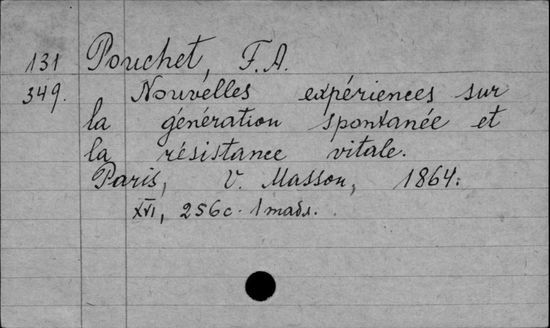 131 Pouchet, F. A.
349. Nouvelles expériences sur
la génération spontanée et
la résistance vitale.
Paris, V. Masson, 1864.
XVI, 256c. 1